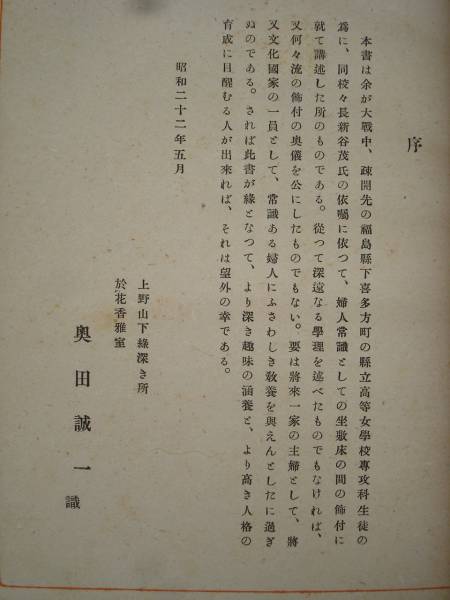 序
本書は余が大戰中、疎開先の福島縣下喜多方町の縣立高等女學校專攻科生徒の
爲に、同校々長新谷茂氏の依囑に依つて、婦人常識としての坐敷床の間の飾付に
就て講述した所のものである。從つて深遠なる學理を述べたものでもなければ、
又何々流の飾付の奥儀を公にしたものでもない。要は將來一家の主婦として、將
又文化國家の一員として、常識ある婦人にふさわしき敎養を與えんとしたに過ぎ
ぬのである。されば此書が緣となつて、より深き趣味の涵養と、より高き人格の
育成に目醒むる人が出來れば、それは望外の幸である。
昭和二十二年五月
上野山下綠深き所
於花香雅室
奥田誠一識